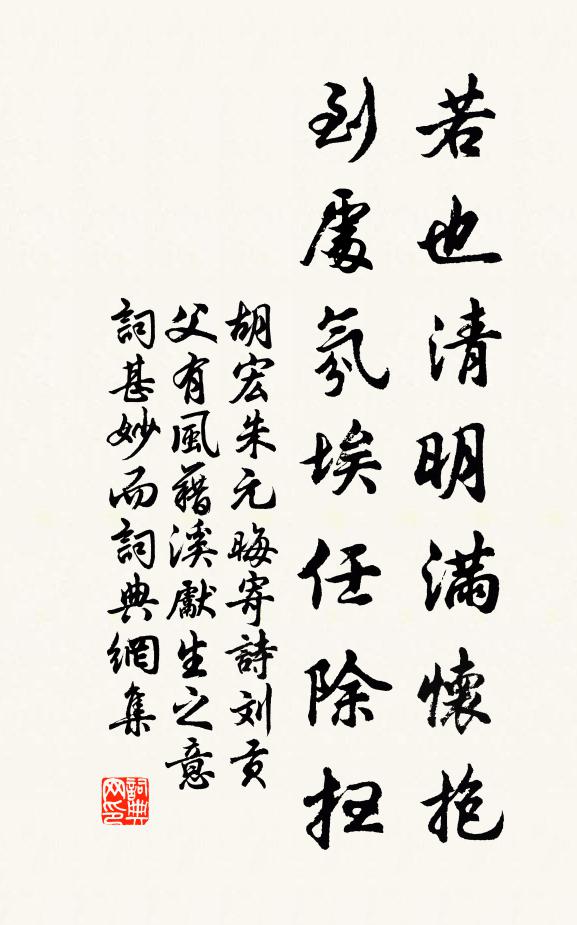 若也清明滿懷抱
到處氛埃任除扫
胡宏朱元晦寄詩刘贡
父有風藉溪獻生之意
詞甚妙而詞典網集
詞典网印